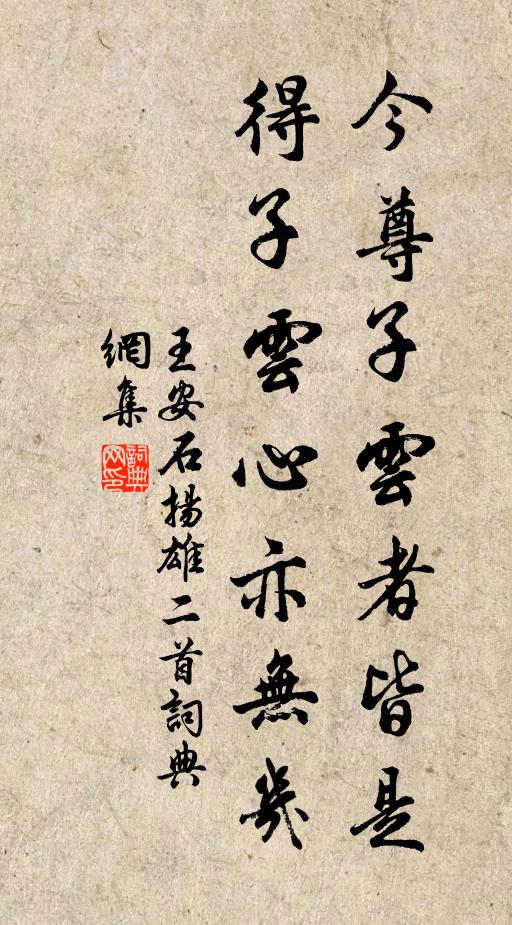 今尊子雲者皆是
得子雲心亦無幾
王安石揚雄二首詞典
網集
詞典
网印